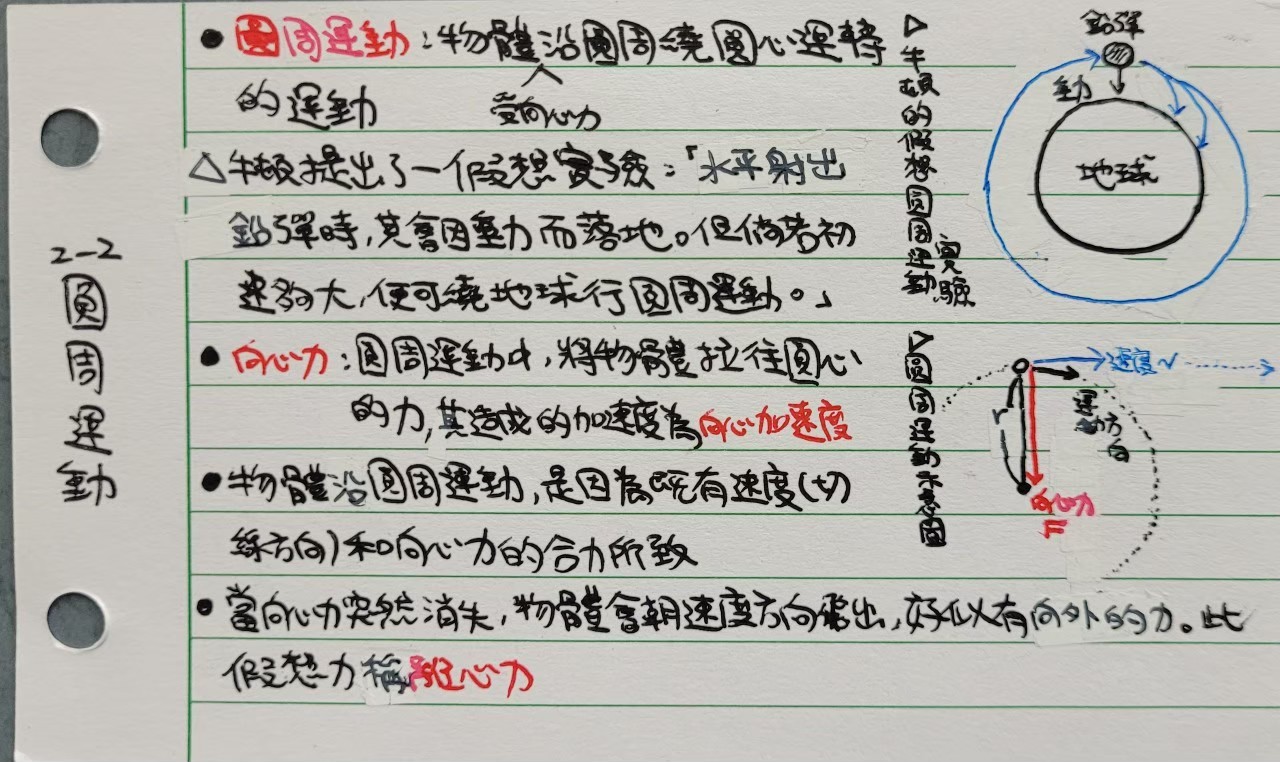 2-2
圓周運動
● 圓周運動:物體沿圓周繞圓心運轉
受向心力
的運動
△牛頓提出了一假想實驗:「水平射出
鉛彈時,其會因重力而落地。但倘若初
速夠大,便可繞地球行圓周運動。」
● 向心力:圓周運動中,將物體拉往圓心
的力,其造成的加速度為向心加速度
● 物體沿圓周運動,是因為既有速度(切
線方向)和向心力的合力所致
● 當向心力突然消失,物體會朝速度方向飛出,好似有向外的力。此
假想力稱離心力
▷牛頓的假想圓周運動實驗
鉛彈
重力
地球
▷圓周運動示意圖
速度v
運動方向
r
向心力
F